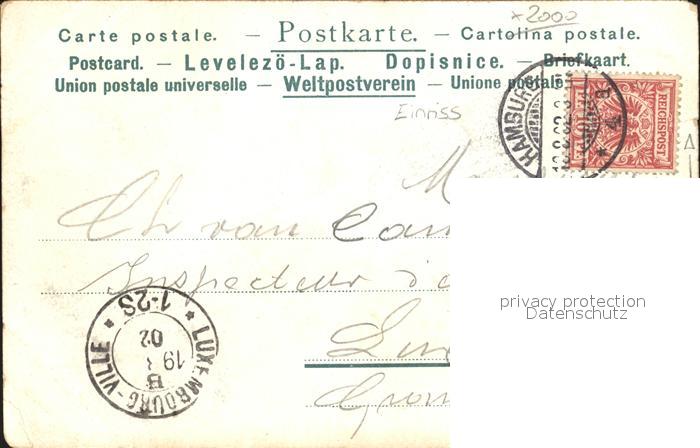 x2000
Carte postale. — Postkarte. — Cartolina postale.
Postcard. — Levelezö-Lap. Dopisnice. — Briefkaart.
Union postale universelle — Weltpostverein — Unione postale
Einriss
HAMBURG
REICHSPOST
M
Ch van Cam
Inspecteur d
privacy protection
Datenschutz
LUXEMBOURG-VILLE
1-2S
19 3
02
B
Lux